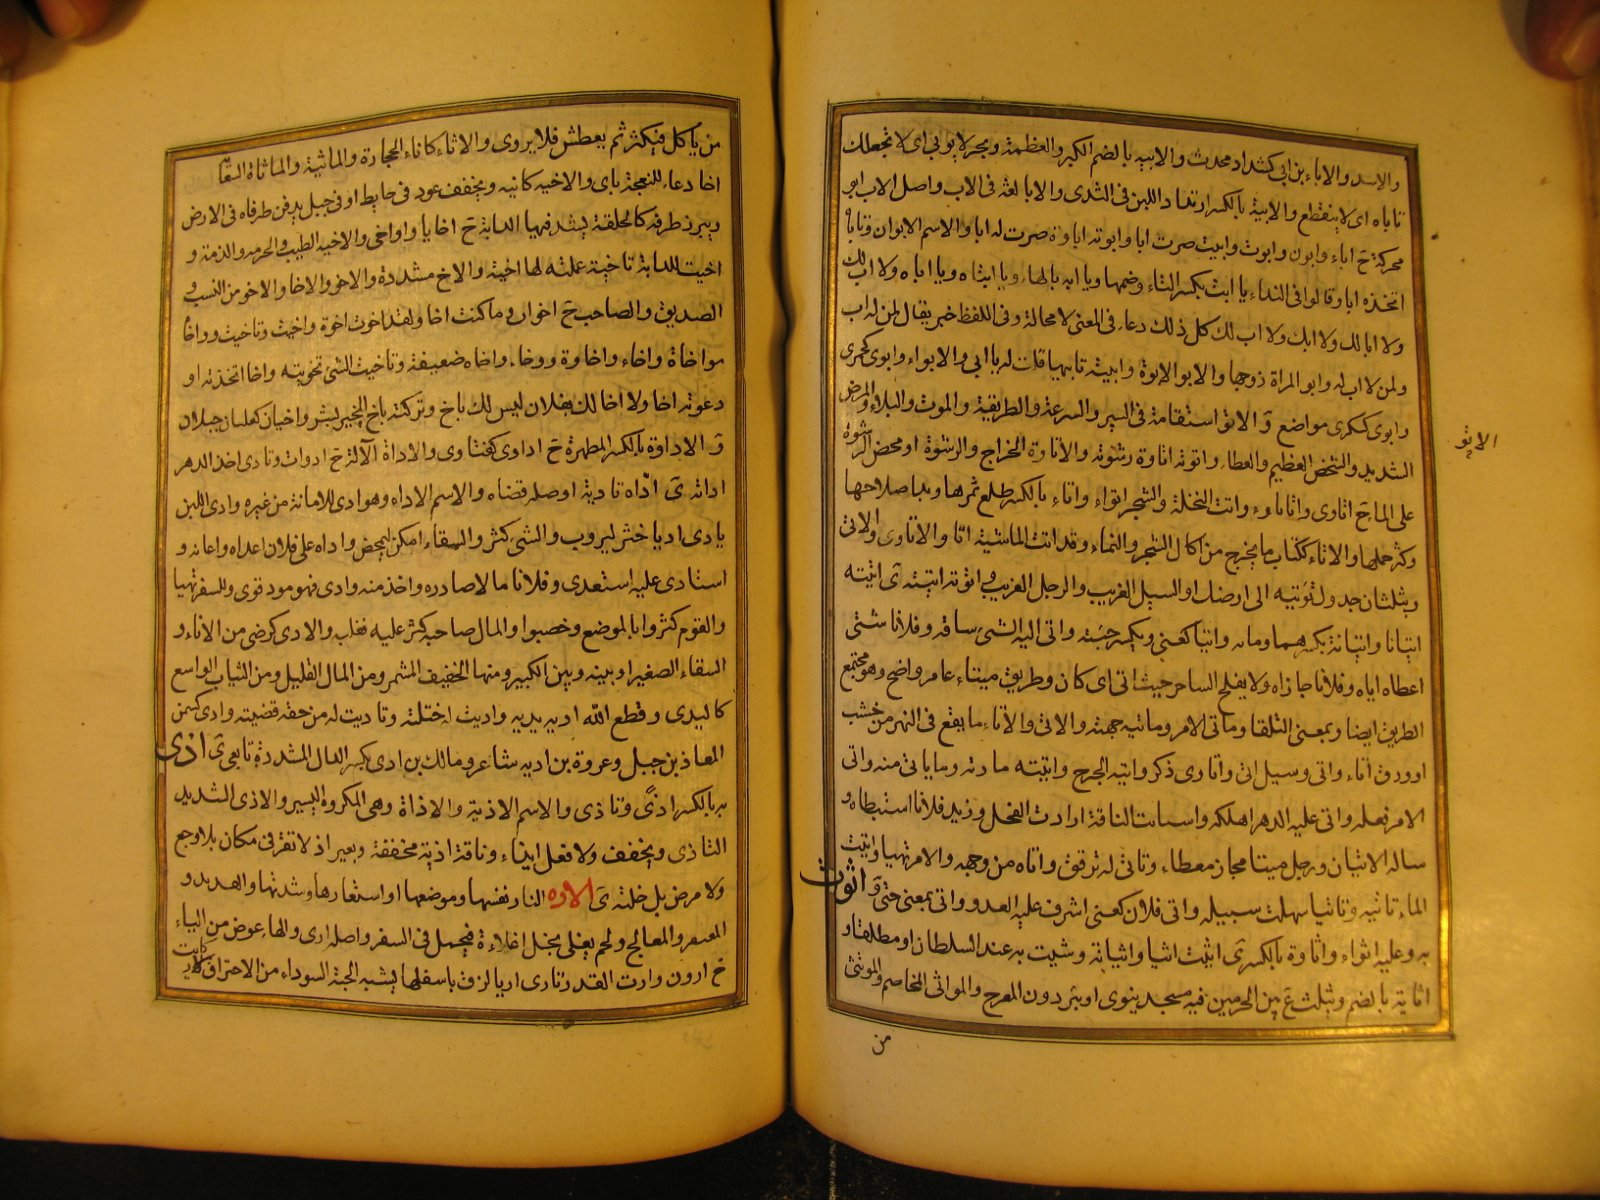 والاسد والاباء بن ابى كشداد محدث والابيه بالضم الكبر والعظمة وبحر لا يوبى اى لا تجعلك
تاباه اى لا ينقطع والابية بالكسر ارتداد اللبن فى الثدى والابا لغة فى الاب واصل الاب ابو
محركة ج اباء وابون وابوت وابيت صرت ابا وابوته اباوة صرت له ابا والاسم الابوان وتاباه
اتخذه ابا وقالوا فى النداء يا ابت بكسر التاء وضمها ويا ابه بالهاء ويا ابتاه ويا اباه ولا اب لك
ولا ابا لك ولا ابك ولا اب لك كل ذلك دعاء فى المعنى لا محالة وفى اللفظ خبر يقال لمن له اب
ولمن لا اب له وابو المراة زوجها والابو الابوة وابيته تابيها قلت له يا ابى والابواء وابوى كجمزى
وابوى كسكرى مواضع و الاتو استقامة فى السير والسرعة والطريقة والموت والبلاء والمرض
الاتو
الشديد والشخص العظيم والعطاء واتوته اتاوة رشوته والاتاوة الخراج والرشوة او محض الرشوة
على الماء ج اتاوى واتاناوء واتت النخلة والشجر اتواء واتاء بالكسر طلع ثمرها وبدا صلاحها
وكثر حملها والاتاء ككتاب ما يخرج من اكال الشجر والنماء وقد اتت الماشية اتا والاتاوى والاتى
ويثلثان جدول تؤتيه الى ارضك او السيل الغريب والرجل الغريب و اتوته اتيته ى اتيته
اتيانا واتيانة بكسرهما وماتى واتيا كعتى ويكسر جئته واتى اليه الشئ ساقه وفلانا شئى
اعطاه اياه وفلانا جازاه ولا يفلح الساحر حيث اتى اى كان وطريق ميتاء عامر واضح وهو مجتمع
الطريق ايضا وبمعنى التلقا وماتى الامر وماتيه جهته والاتى والاتاء ما يقع فى النهر من خشب
او ورق اتاء واتى وسيل اتى واتاوى ذكر واتيه الجرح واتيته مادته وما ياتى منه واتى
الامر فعله واتى عليه الدهر اهلكه واستاتت الناقة ارادت الفحل وزيد فلانا استبطاه و
ساله الاتيان ورجل ميتا مجاز معطاء وتاتى له ترفق واتاه من وجهه والامر تهيا واتيت
الماء تاتيه وتاتيا سهلت سبيله واتى فلان كعنى اشرف عليه العدو واتى بمعنى حتى و اثوت
به وعليه اثواء واثاوة بالكسر ى اثيت اثيا واثياية وشيت به عند السلطان او مطلقا و
اثاية بالضم ويثلث ع بين الحرمين فيه مسجد نبوى او بئر دون العرج والمواثى المخاصم والموتثى
من
من ياكل فيكثر ثم يعطش فلا يروى والاثاء كاناء الحجارة والماثية والماثاة السقا
اخا دعاء للنعجة باى والاخيه كانيه ويخفف عود فى حايط او فى حبل يدفن طرفاه فى الارض
ويبرز طرفه كالحلقة يشد فيها الدابة ج اخايا واواخى والاخيه الطنب والحرمه والذمة و
اخيت للدابة تاخية عملت لها اخية والاخ مشددة والاخو والاخا والاخو من النسب و
الصديق والصاحب ج اخوان وما كنت اخا ولقد اخوت اخوة واخيت وتاخيت وواخا
مواخاة واخاء واخاوة ووخاء واخاه ضعيفة وتاخيت الشئ تخويته واخا اتخذته او
دعوته اخا ولا اخا لك بفلان ليس لك باخ وتركته باخ الخير بشر واخيان كعليان جبلان
و الاداوة بالكسر المطهرة ج اداوى كفتاوى والاداة الآلة ج ادوات وتادى اخذ الدهر
اداته ى ادّاه تادية اوصله قضاه والاسم الاداء وهو ادى للامانة من غيره وادى اللبن
يادى اديا خثر ليروب والشئ كثر والسقاء امكن ليمخض واداه على فلان اعداه واعانه و
استادى عليه استعدى وفلانا مالا صادره واخذ منه وادى فهو مود قوى وللسفر تهيا
والقوم كثروا بالموضع وخصبوا والمال صاحبه كثر عليه فغلب والادى كرضى من الاناء و
السقاء الصغير او بينه وبين الكبير ومنها الخفيف المشمر ومن المال القليل ومن الثياب الواسع
كاليدى وقطع الله اديه يديه واديت اختلته وتاديت له من حقه قضيته وادى كسمى
المعاذ بن جبل وعروة بن اديه شاعر ومالك بن ادى بكسر الدال المشددة تابعى ى اذى
به بالكسر اذىً وتاذى والاسم الاذية والاذاة وهى المكروه اليسير والاذى الشديد
التاذى ويخفف ولا فعل ايذاء وناقة اذية مخففة وبعير اذ لا تقر فى مكان بلا وجع
ولا مرض بل خلقة ى الاوه النار نفسها وموضعها او استعارها وشدتها والهديد و
المعسفر والمعالج ولحم يغلى بخل اغلاءة فيحمل فى السفر واصله ارى والهاء عوض من الياء
ج ارون وارت القدر تارى اريا لزق باسفلها يشبه الجبة السوداء من الاحتراق كارت